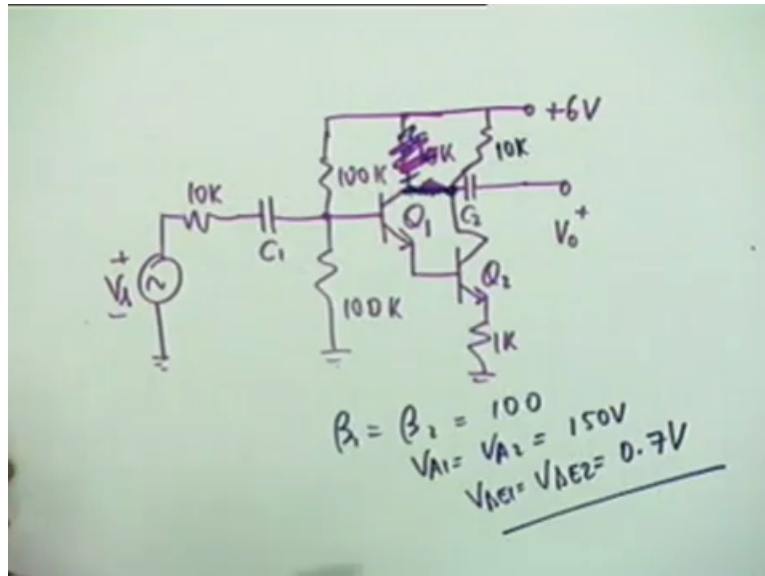 +6V
10K
100K
10K
C1
Q1
C2
Vo
+
+
Vs
-
100K
Q2
1K
β1 = β2 = 100
VA1 = VA2 = 150V
VBE1 = VBE2 = 0.7V